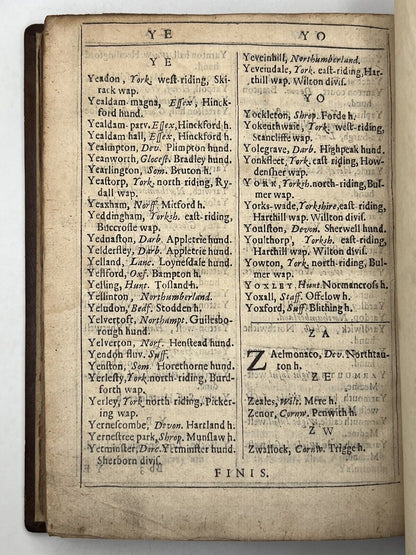 YE
YE
Yeadon, York. west-riding, Ski-
rack wap.
Yealdam-magna, Essex, Hinck-
ford hund.
Yealdam-parv. Essex, Hinckford h.
Yealdam hall, Essex, Hinckford h.
Yealmpton, Dev. Plimpton hund.
Yeanworth, Glocest. Bradley hund.
Yearlington, Som. Bruton h.
Yeastorp, York. north-riding, Ry-
dall wap.
Yeaxham, Norff. Mitford h.
Yeddingham, Yorksh. east-riding,
Buccrosse wap.
Yednaston, Darb. Appletrie hund.
Yeldersley, Darb. Appletrie hund.
Yelland, Lanc. Loynesdale hund.
Yelsford, Oxf. Bampton h.
Yelling, Hunt. Tosland h.
Yellinton, Northumberland.
Yeludon, Bedf. Stodden h.
Yelvertoft, Northampt. Guilesbo-
rough hund.
Yelverton, Norf. Henstead hund.
Yendon fluv. Suff.
Yenston, Som. Horethorne hund.
Yerlesty, York. north-riding, Burd-
forth wap.
Yerley, York. north-riding, Picker-
ing wap.
Yernescombe, Devon. Hartland h.
Yernestree park, Shrop. Munslaw h.
Yetminster, Dorc. Yetminster hund.
Sherborn divis.
YO
Yeveinhill, Northumberland.
Yevendale, York. east-riding, Har-
thill wap. Wilton divis.
YO
Yockleton, Shrop. Forde h.
Yokenthwait, York. west-riding,
Stancliffe wap.
Yolegrave, Darb. Highpeak hund.
Yonkfleet, York. east-riding, How-
densher wap.
YORK, Yorksh. north-riding, Bul-
mer wap.
Yorks-wade, Yorkshire, east-riding,
Harthill wap. Willton divis.
Youlston, Devon. Sherwell hund.
Youlthorp, Yorksh. east-riding,
Harthill wap. Wilton divis.
Yowton, York. north-riding, Bul-
mer wap.
YOXLEY, Hunt. Normancross h.
Yoxall, Staff. Offelow h.
Yoxford, Suff. Blithing h.
ZA
ZAelmonaco, Dev. Northtau-
ton h.
ZE
Zeales, Wilt. Mere h.
Zenor, Cornw. Penwith h.
ZW
Zwallock, Cornw. Trigge h.
FINIS.